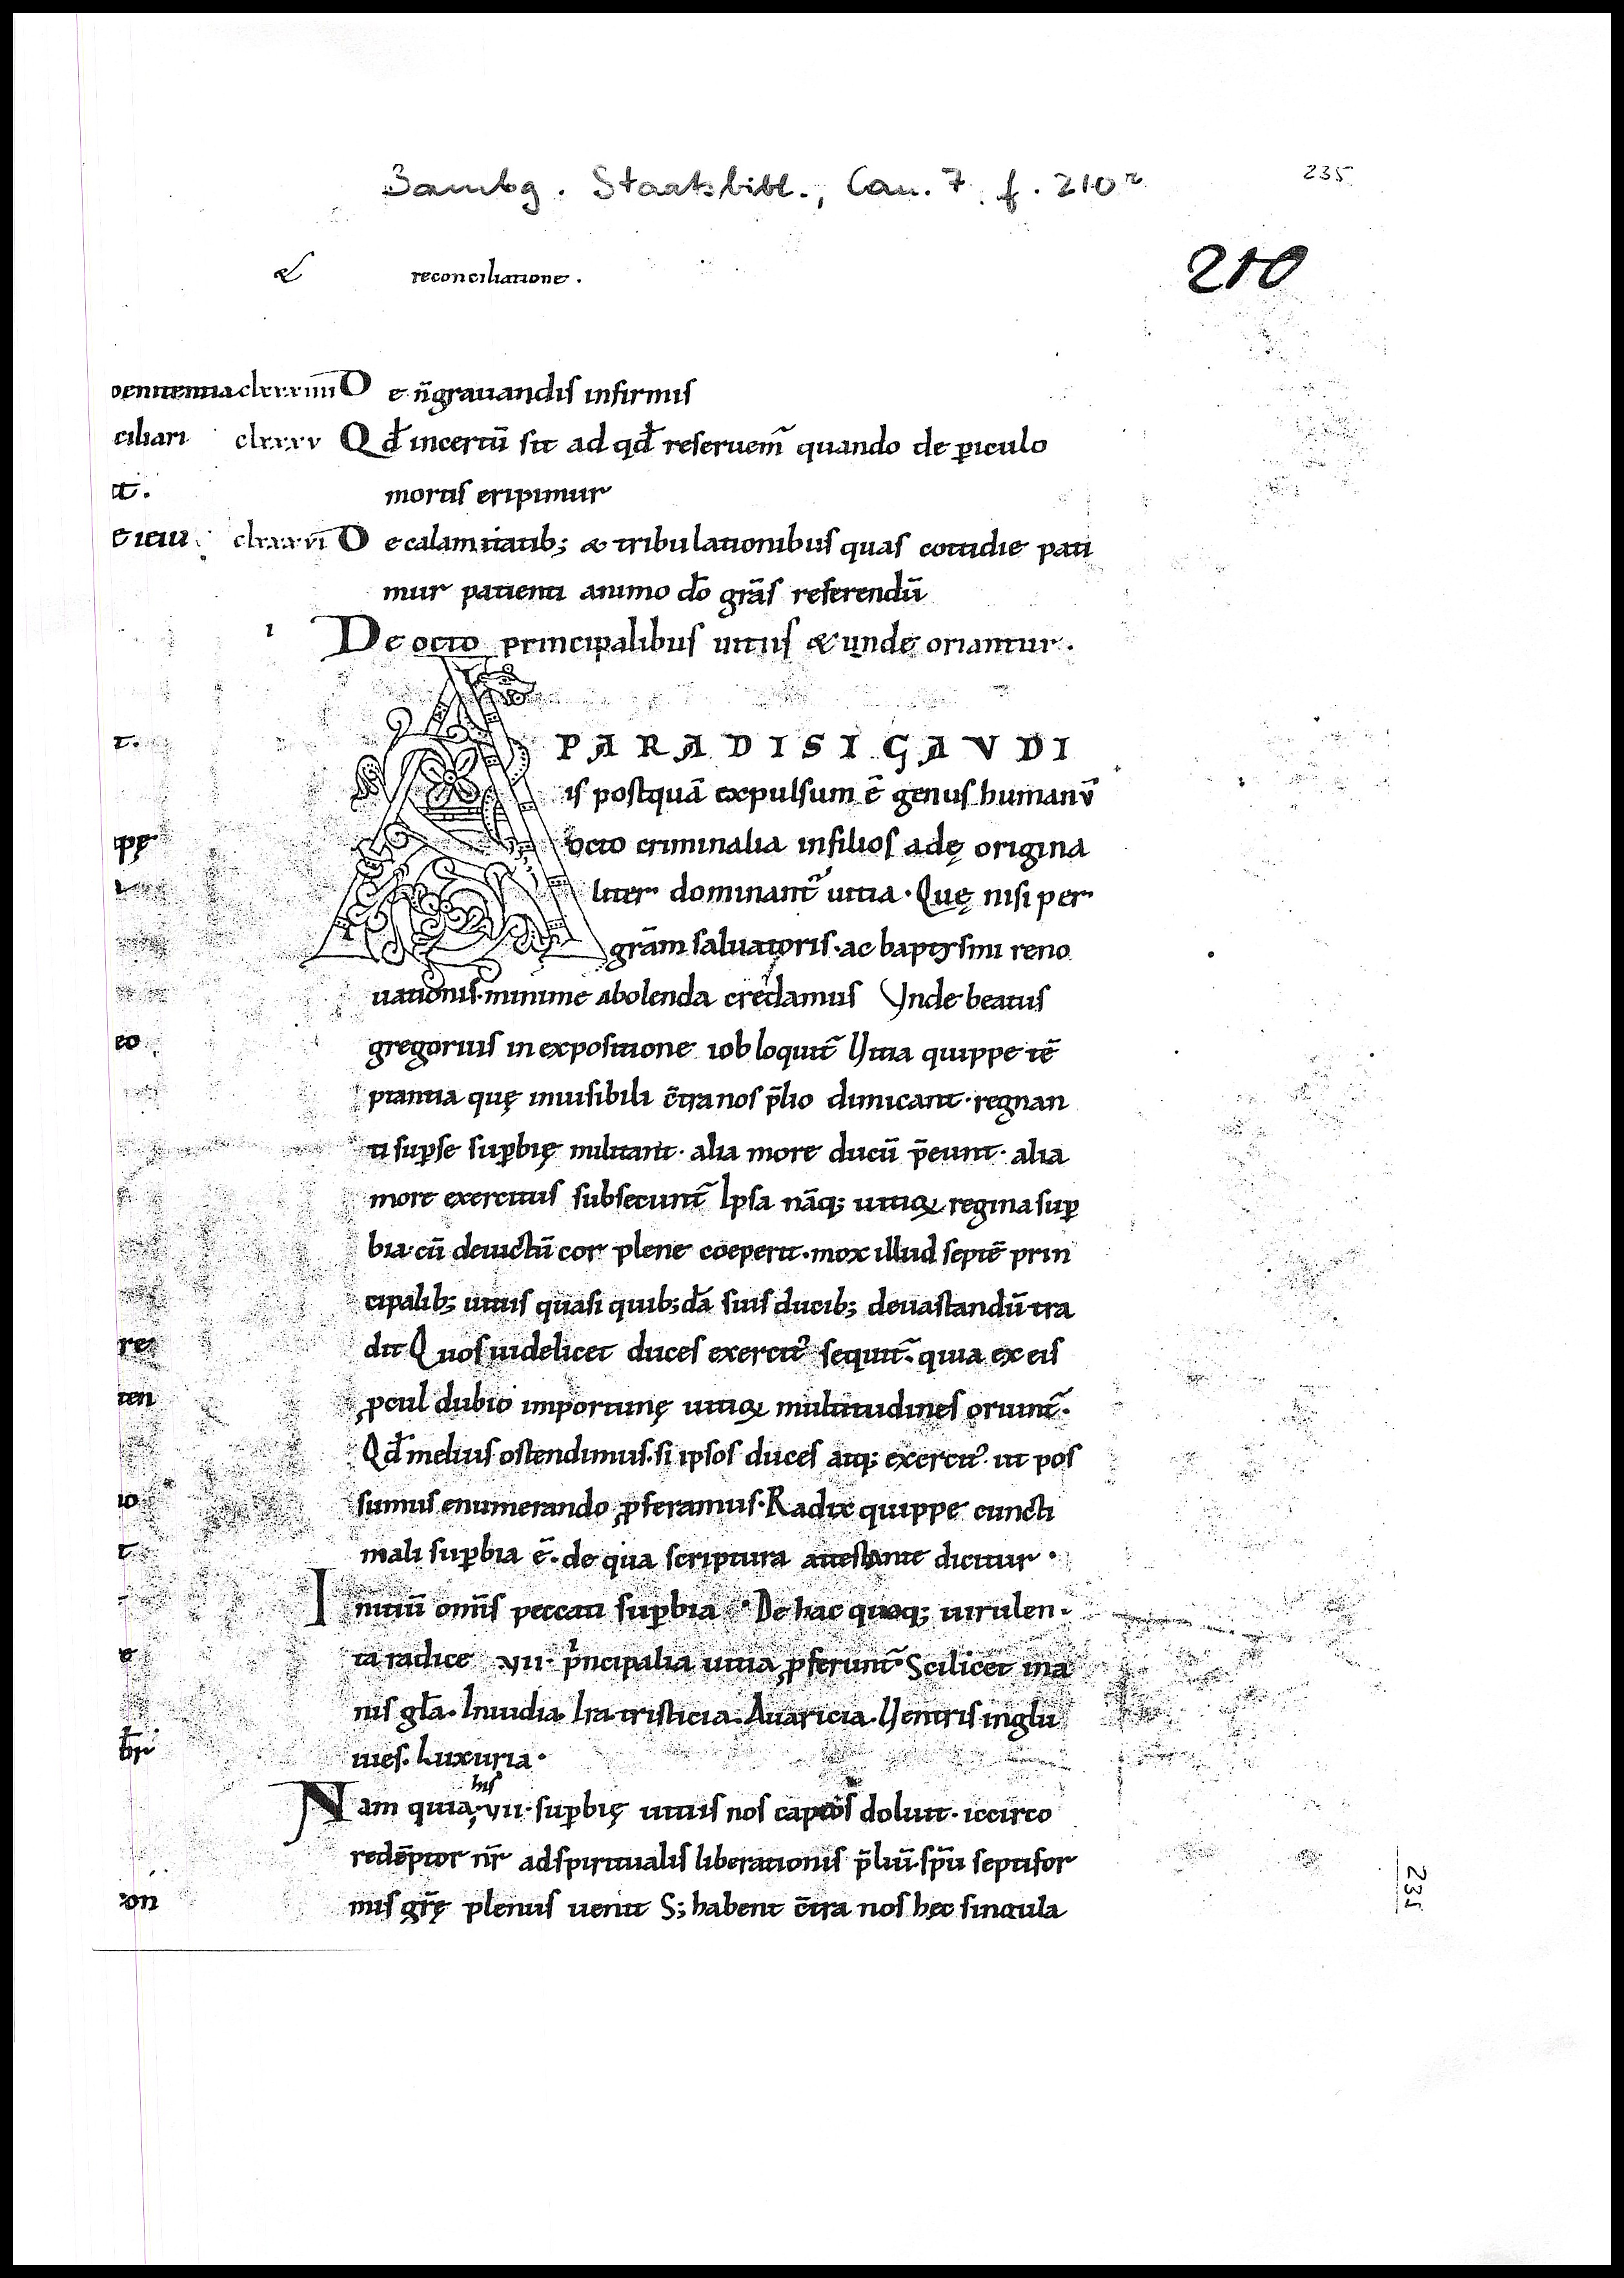 Bambg. Staatsbibl., Can. 7 f. 210r
235
210
& reconciliatione.
penitentia clxxxiiii De n̄ grauandis infirmis
ciliari clxxxv Qđ incertū sit ad qđ reseruem̃ quando de ꝑiculo
it. mortis eripimur
clxxxvi De calamitatib; & tribulationibus quas cottidie pati
mur patienti animo dō grās referendū
i De octo principalibus uitiis & unde oriantur.
A PARADISI GAVDI
t.
is postquā expulsum ē genus humanū
ppę octo criminalia in filios adę origina
liter dominant᷑ uitia. Quę nisi per
grām saluatoris. ac baptismi reno
uationis. minime abolenda credamus Vnde beatus
eo gregorius in expositione iob loquit᷑ Vitia quippe tē
ptantia quę inuisibili c̄tra nos p̄lio dimicant. regnan
ti suꝑ se suꝑbię militant. alia more ducū p̄eunt. alia
more exercitus subsecunt᷑ Ipsa nāq; uitioꝝ regina suꝑ
bia. cū deuictū cor plene coeperit. mox illud septē prin
cipalib; uitiis quasi quib;dā suis ducib; deuastandū tra
re dit Quos uidelicet duces exercit᷒ sequit᷑. quia ex eis
ten ꝓcul dubio importunę uitioꝝ multitudines oriunt᷑.
Qđ melius ostendimus. si ipsos duces atq; exercit᷒ ut pos
io sumus enumerando ꝓferamus. Radix quippe cuncti
t mali suꝑbia ē. de qua scriptura attestante dicitur.
Initiū om̄is peccati suꝑbia. De hac quoq; uirulen
e ta radice vii. pͥncipalia uitia ꝓferunt᷑ Scilicet ina
nis gła. Inuidia. Ira. tristicia. Auaricia. Ventris inglu
br̄ uies. Luxuria.
his
Nam quia vii. suꝑbię uitiis nos captos doluit. iccirco
redēptor nr̄ ad spiritualis liberationis p̄liū. sp̄u septifor
on mis grę̄ plenus uenit S; habent c̄tra nos hęc singula
235